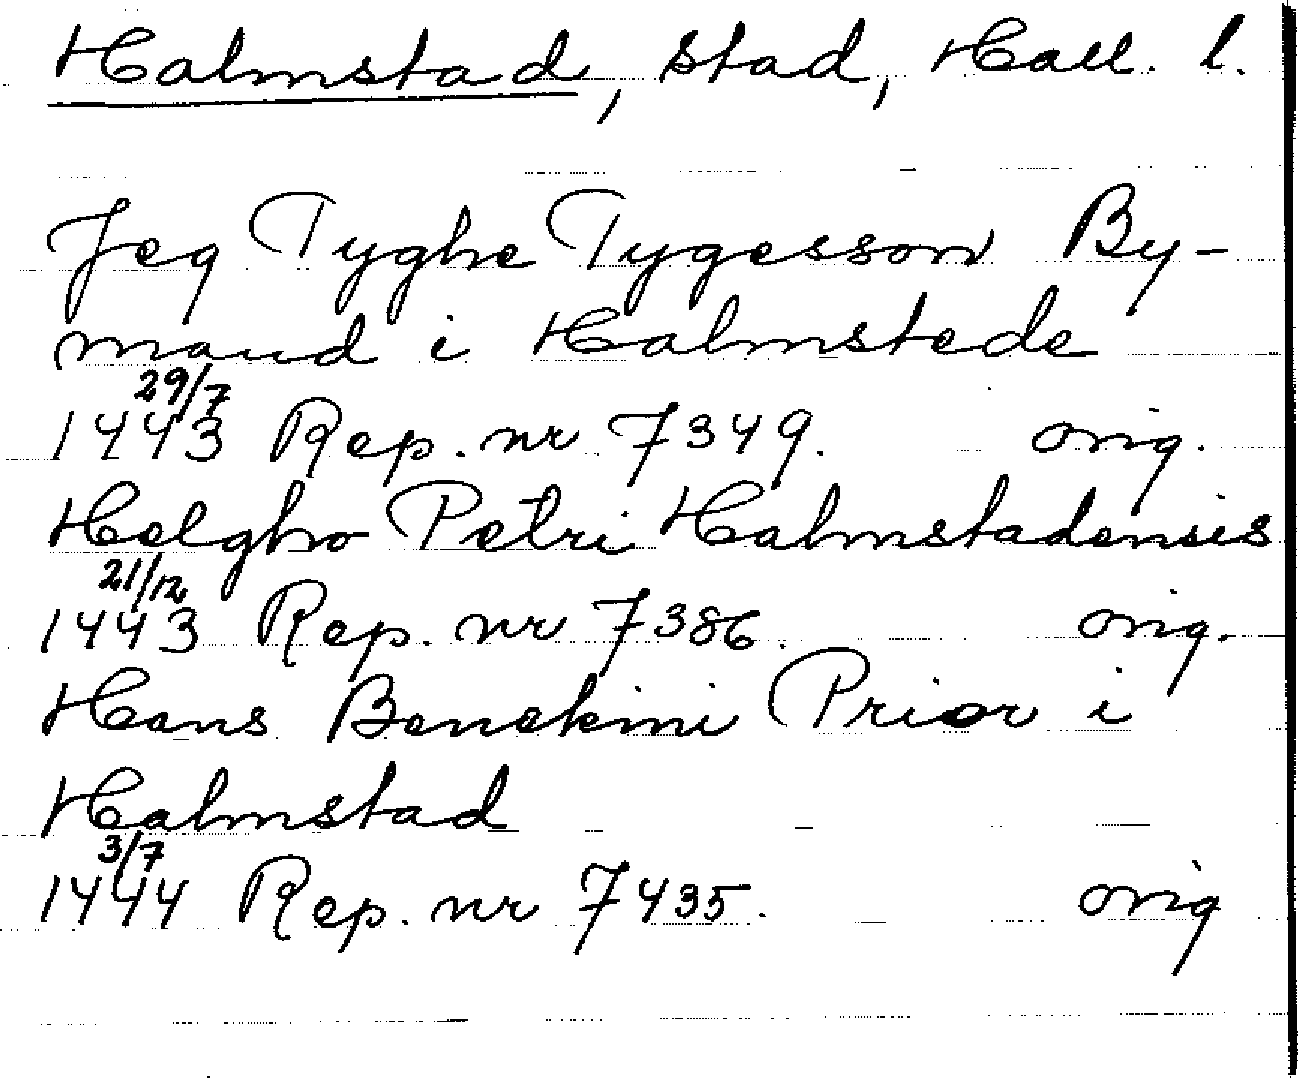 Halmstad, stad, Hall. l.
Jeq Tyghe Tygesson By-
maud i Halmstede
29/7
1443 Rep. nr 7349. orig.
Helgho Petri Halmstadensis
21/12
1443 Rep. nr 7386. orig.
Hans Benekini Prior i
Halmstad
3/7
1444 Rep. nr 7435. orig